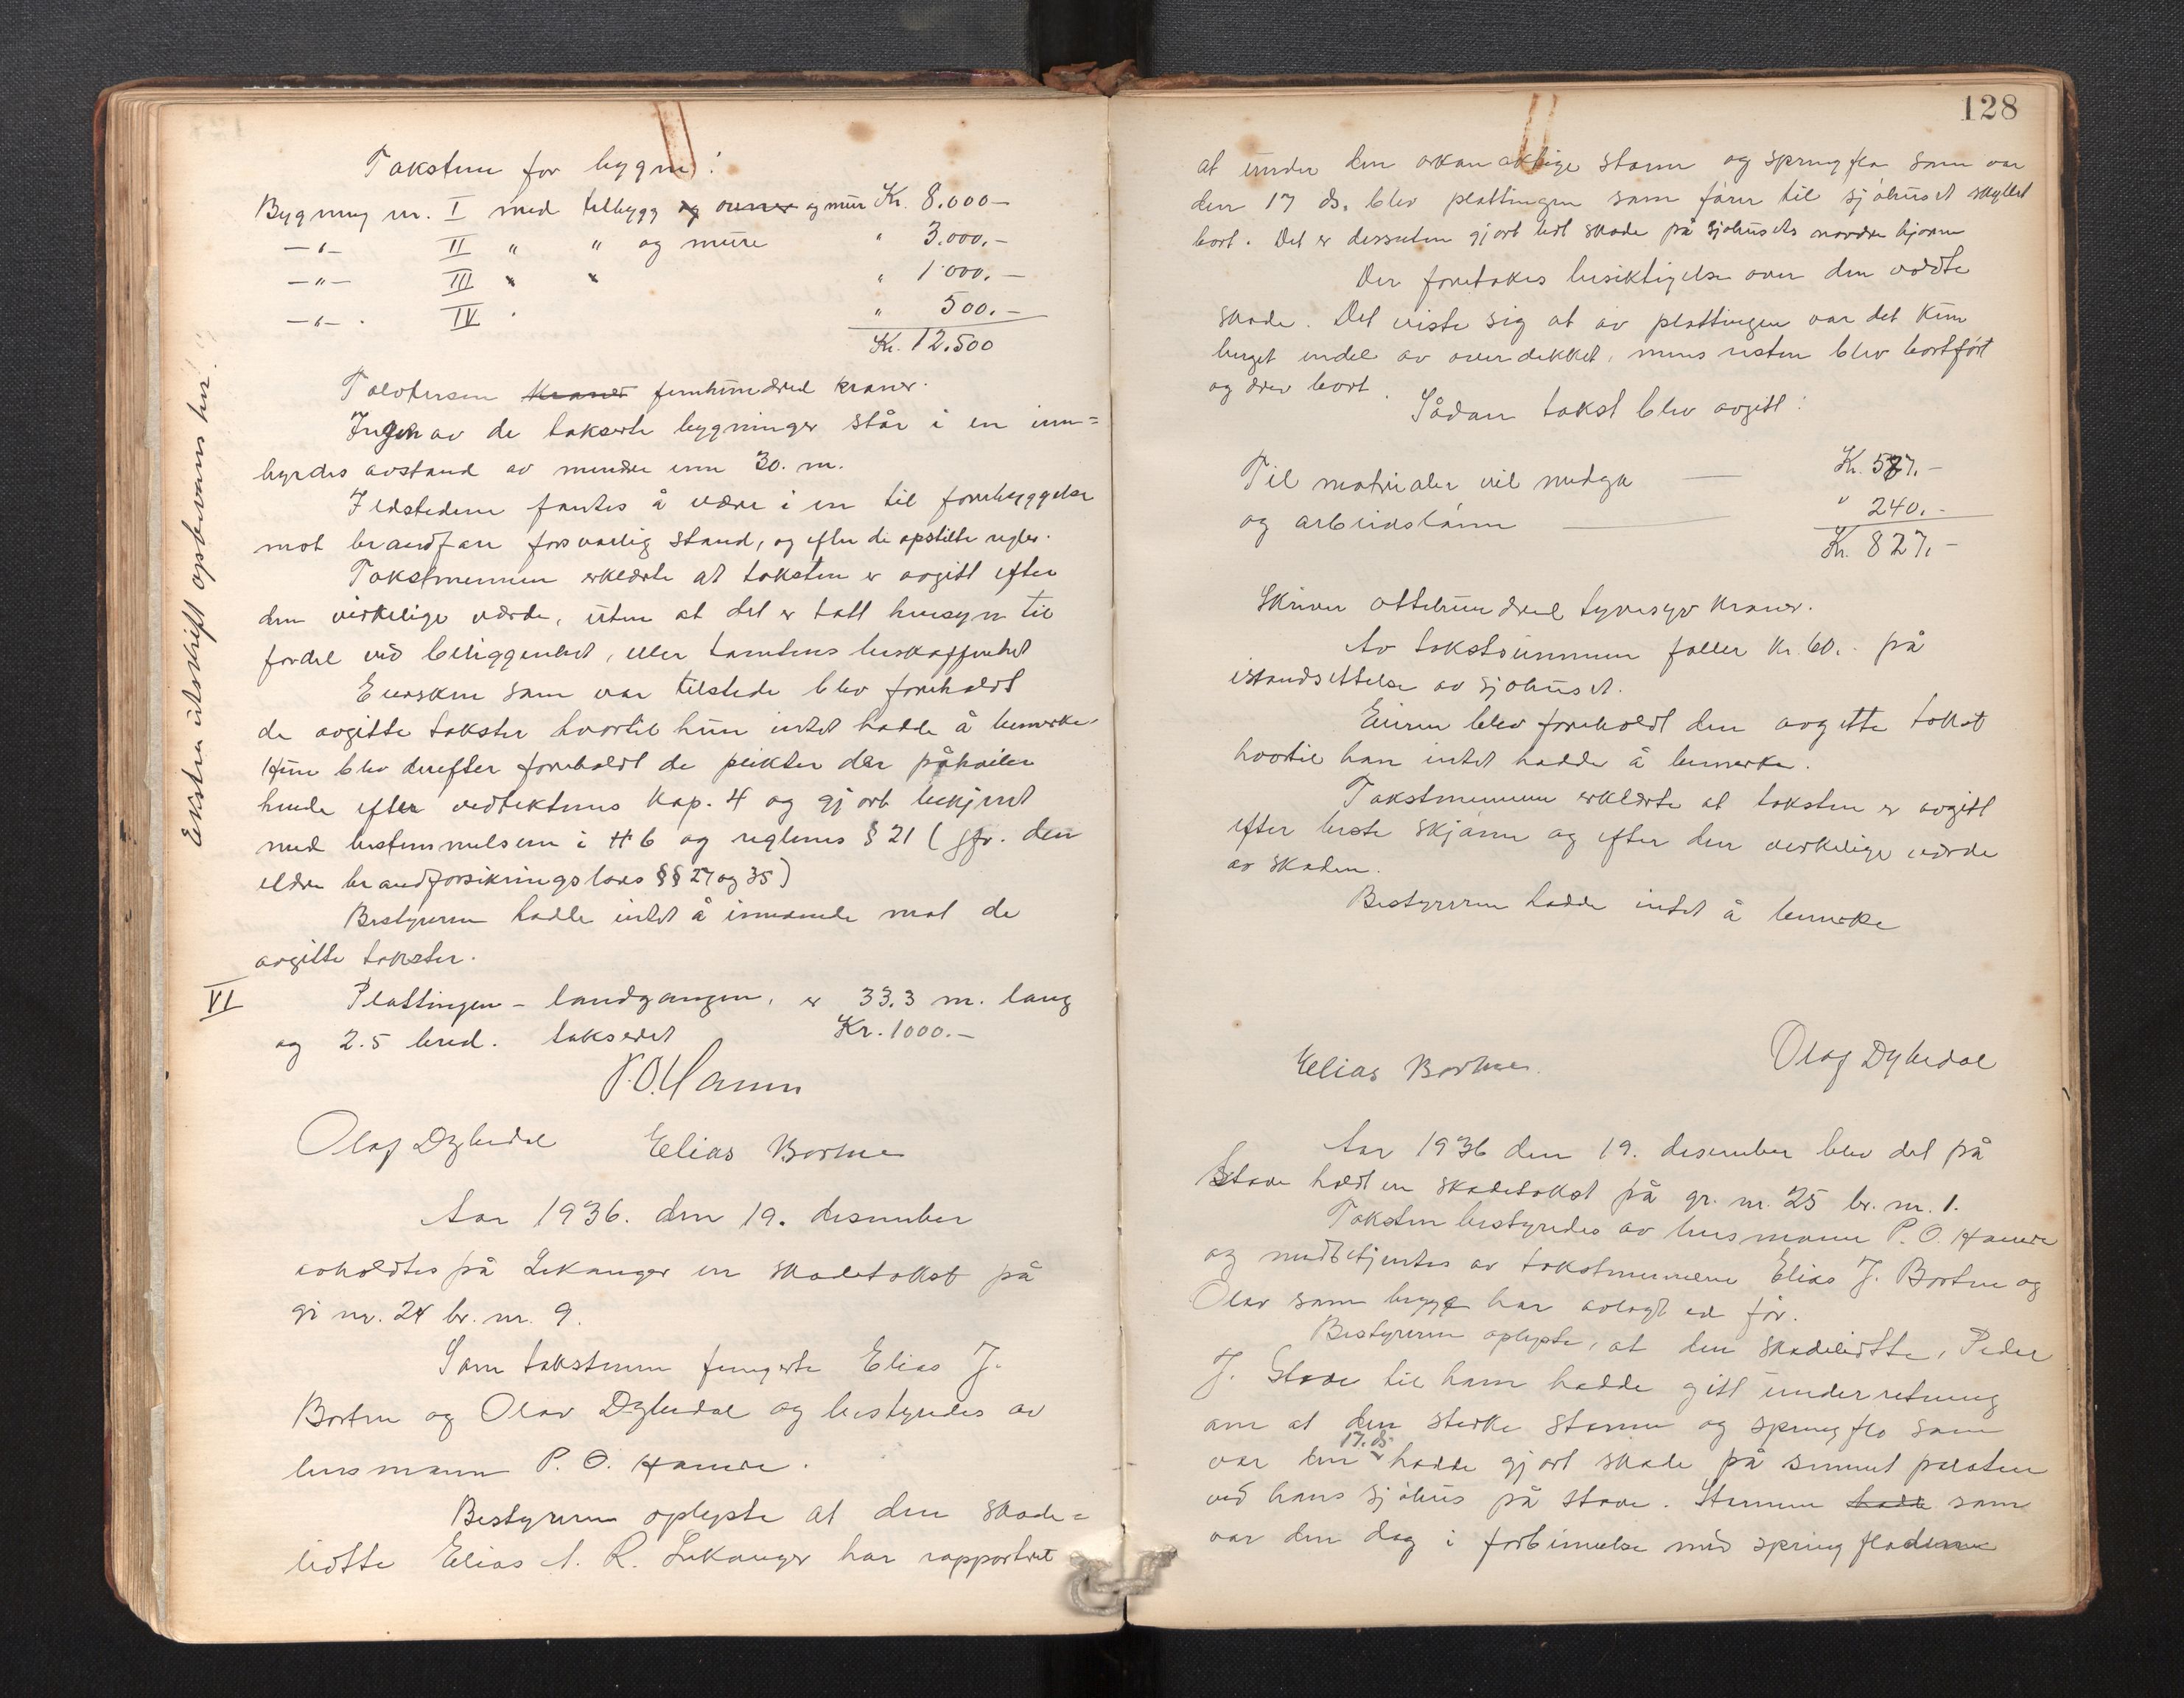 Taksten for bygn:
Bygning nr. I med tilbygg og ovner og mur Kr. 8.000 –
–"– II " " og mure " 3.000.–
–"– III " " " 1.000.–
–"– IV " 500.–
Kr. 12.500
Tolvtusen kroner femhundred kroner.
Ingen av de takserte bygninger står i en inn=
byrdes avstand av mindre enn 30. m.
Ildstedene fantes å være i en til forebyggelse
mot brandfare forsvarlig stand, og efter de opstilte regler.
Takstmennene erklærte at taksten er avgitt efter
den virkelige værdi, uten at det er tatt hensyn til
fordel ved beliggenhet, eller tomtens beskaffenhet
Eiersken som var tilstede blev foreholdt
de avgitte takster hvortil hun intet hadde å bemerke
Hun blev derefter foreholdt de plikter der påhviler
hende efter vedtektenes kap. 4 og gjort bekjent
med bestemmelsene i # 6 og reglenes § 21 (jfr. den
eldre brandforsikringslovs §§ 27 og 35)
Bestyreren hadde intet å innvende mot de
avgitte takster.
VI Plattingen – landgangen, er 33.3 m. lang
og 2.5 bred. taksert Kr. 1000.–
P.O. Hamre
Olaf Dybedal Elias Bortne
Ekstra utskrift opbevares her!!!
Aar 1936. den 19. desember
avholdtes på Lekanger en skadetakst på
gr nr. 24 br. nr. 9.
Som takstmenn fungerte Elias J.
Bortne og Olav Dybedal og bestyredes av
lensmann P. O. Hamre.
Bestyreren oplyste at den skade=
lidte Elias A. R. Lekanger har rapportert
128
at under den orkanaktige storm og springflo som var
den 17 ds. blev plattingen som fører til sjøhuset skyllet
bort. Det er dessuten gjort litt skade på sjøhusets nordre hjørne
Der foretokes besiktigelse over den voldte
skade. Det viste sig at av plattingen var det kun
berget endel av overdekket, mens resten blev bortført
og drev bort.
Sådan takst blev avgitt:
Til materialer vil medgå — Kr. 587.–
og arbeidslønn — " 240.–
Kr. 827.–
Skriver ottehundred tyvesyv kroner.
Av takstsummen faller kr. 60.– på
istandsettelse av sjøhuset.
Eieren blev foreholdt den avgitte takst
hvortil han intet hadde å bemerke.
Takstmennene erklærte at taksten er avgitt
efter beste skjønn og efter den virkelige værdi
av skaden.
Bestyreren hadde intet å bemerke
Elias Bortne. Olaf Dybedal
Aar 1936 den 19. desember blev det på
Stave holdt en skadetakst på gr. nr. 25 br. nr. 1.
Taksten bestyredes av lensmann P. O. Hamre
og medbetjentes av takstmennene Elias J. Bortne og
Olav som begge har avlagt ed før.
Bestyreren oplyste, at den skadelidte, Peder
J. Stave til ham hadde gitt underretning
om at den sterke storm og springflo som
var den 17. ds. hadde gjort skade på
ved hans sjøhus på Stave. Stormen hadde som
var den dag i forbinnelse med springfloden